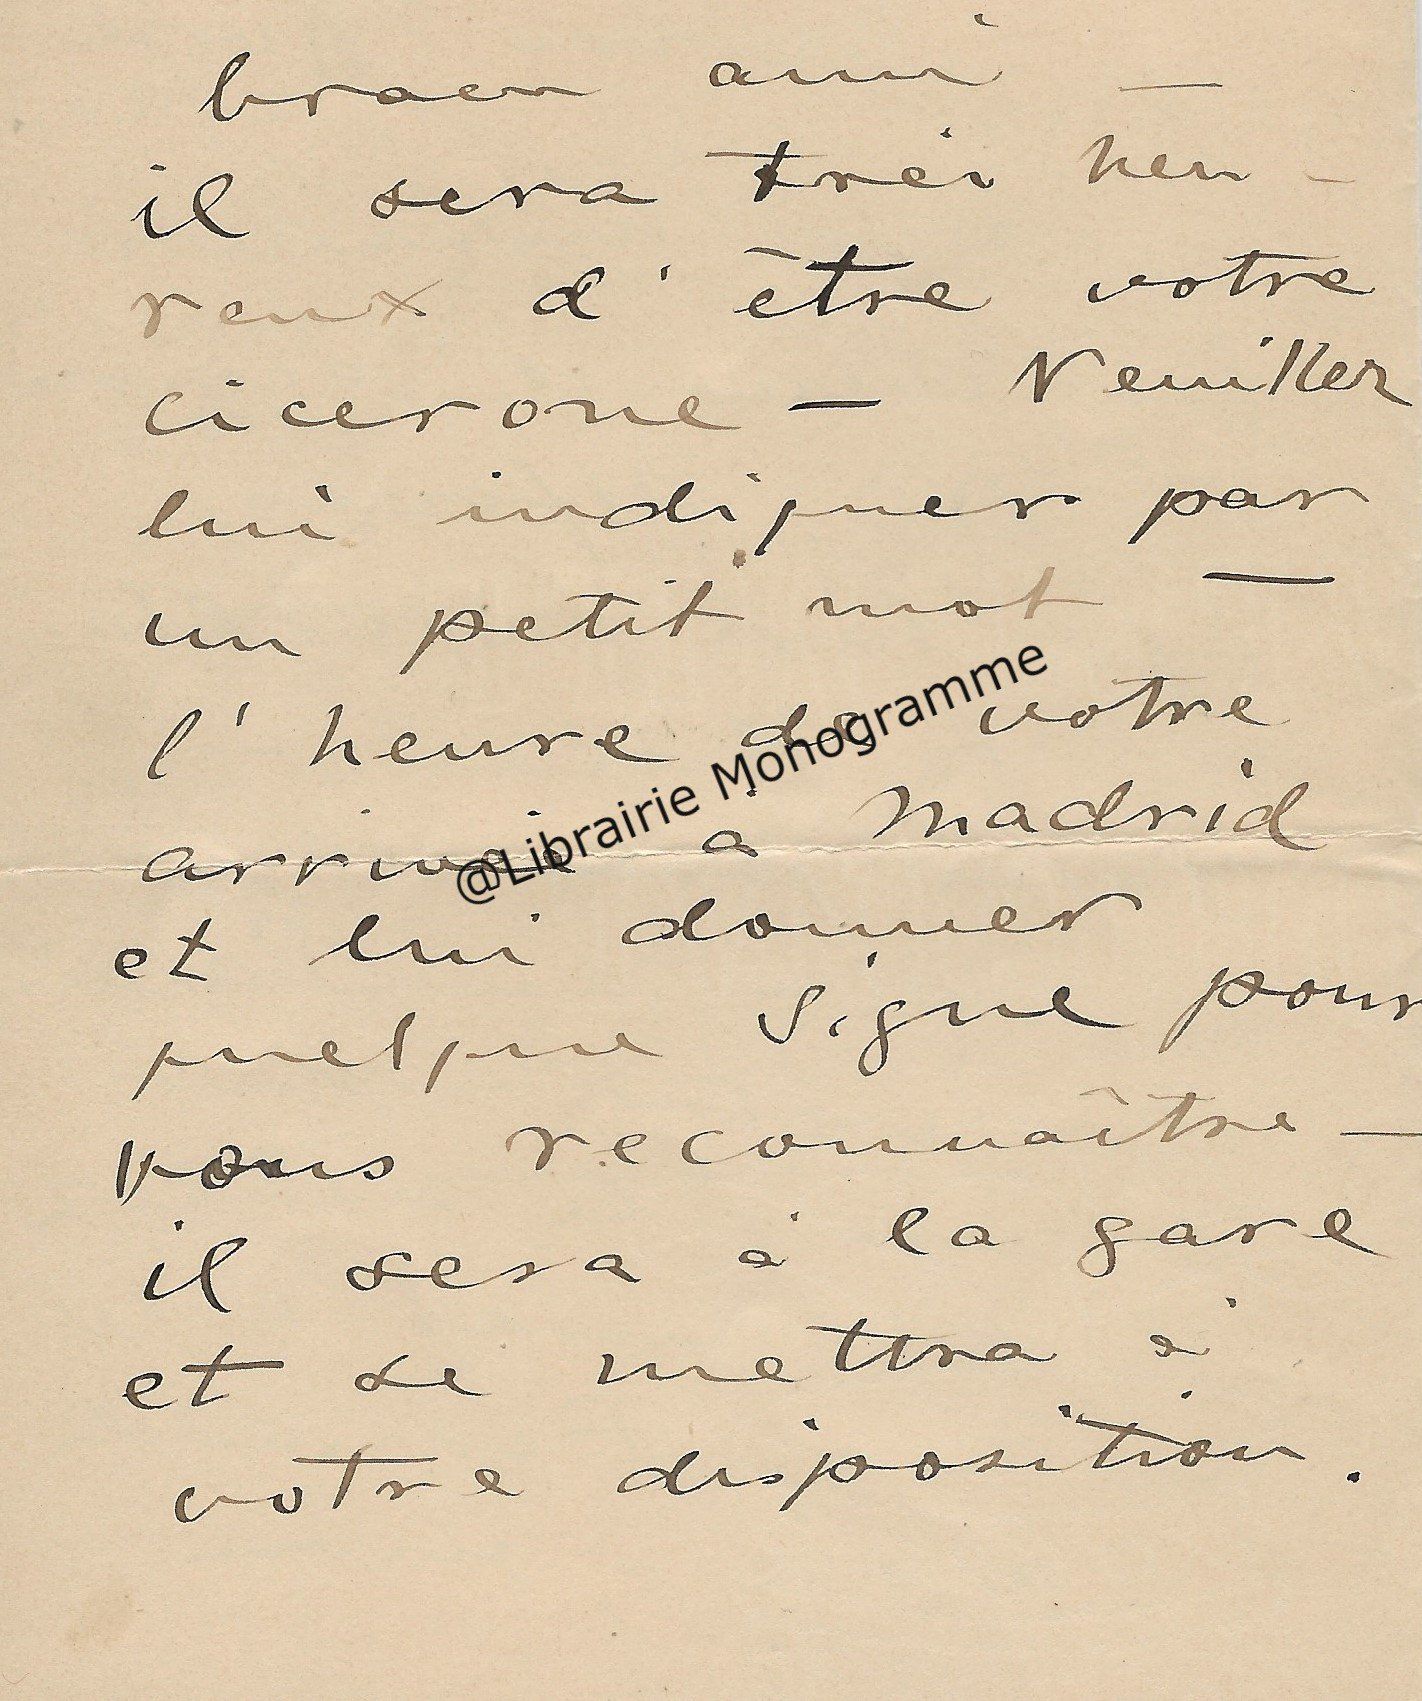 ami —
il sera très heu-
reux d'être votre
cicerone — Veuillez
lui indiquer par
un petit mot —
l'heure de votre
arrivée à Madrid
et lui donner
quelque signe pour
vous reconnaître —
il sera à la gare
et se mettra à
votre disposition.
@Librairie Monogramme